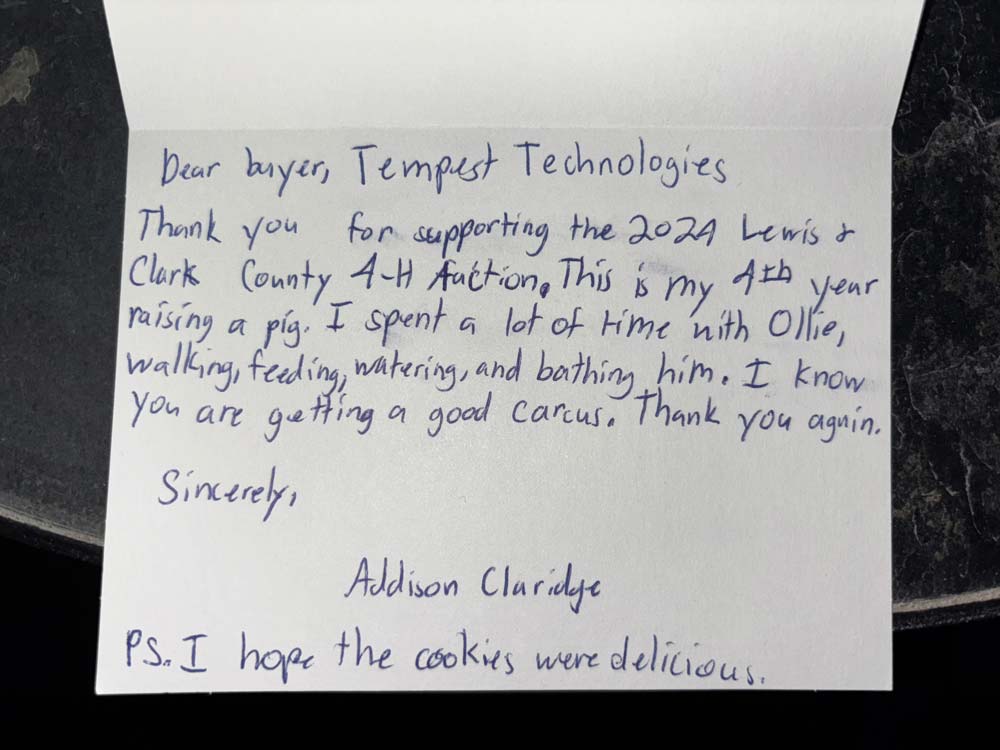 Dear buyer, Tempest Technologies
Thank you for supporting the 2024 Lewis &
Clark County 4-H Auction. This is my 4th year
raising a pig. I spent a lot of time with Ollie,
walking, feeding, watering, and bathing him. I know
you are getting a good carcus. Thank you again.
Sincerely,
Addison Claridge
PS. I hope the cookies were delicious.